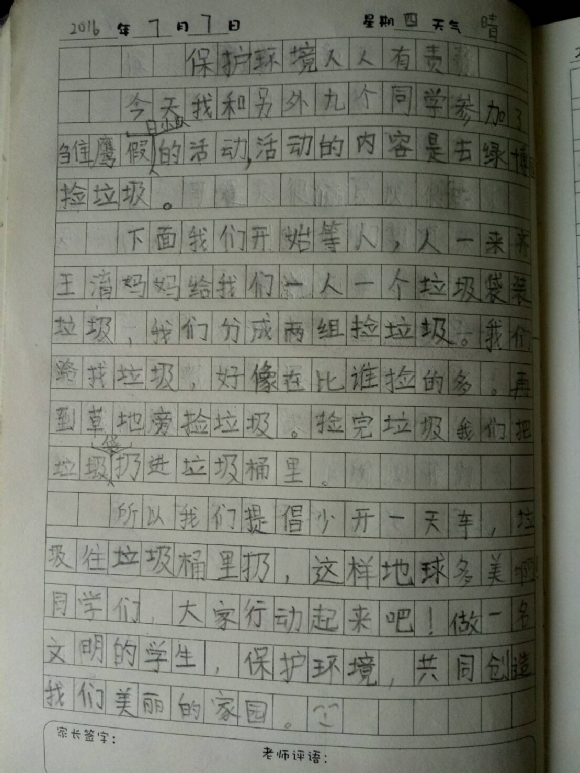 2016 年 7 月 7 日 星期 四 天气 晴
保护环境人人有责
今天我和另外九个同学参加了
雏鹰假日小队的活动,活动的内容是去绿博园
捡垃圾。
下面我们开始等人,人一来齐
王清妈妈给我们一人一个垃圾袋装
垃圾,我们分成两组捡垃圾。我们
路找垃圾,好像在比谁捡的多。再
到草地旁捡垃圾。捡完垃圾我们把
垃圾袋扔进垃圾桶里。
所以我们提倡少开一天车,垃
圾往垃圾桶里扔,这样地球多美啊
同学们,大家行动起来吧!做一名
文明的学生,保护环境,共同创造
我们美丽的家园。
家长签字:
老师评语: